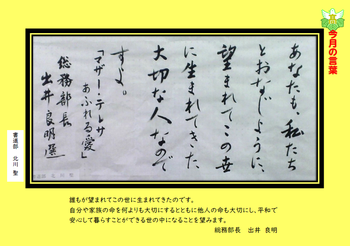 今月の言葉
あなたも、私たち
とおなじように、
望まれてこの世
に生まれてきた
大切な人なので
すよ。
「マザー・テレサ
あふれる愛」
総務部長
出井良明選
書道部 北川 聖
誰もが望まれてこの世に生まれてきたのです。
自分や家族の命を何よりも大切にするとともに他人の命も大切にし、平和で
安心して暮らすことができる世の中になることを望みます。
総務部長 出井 良明